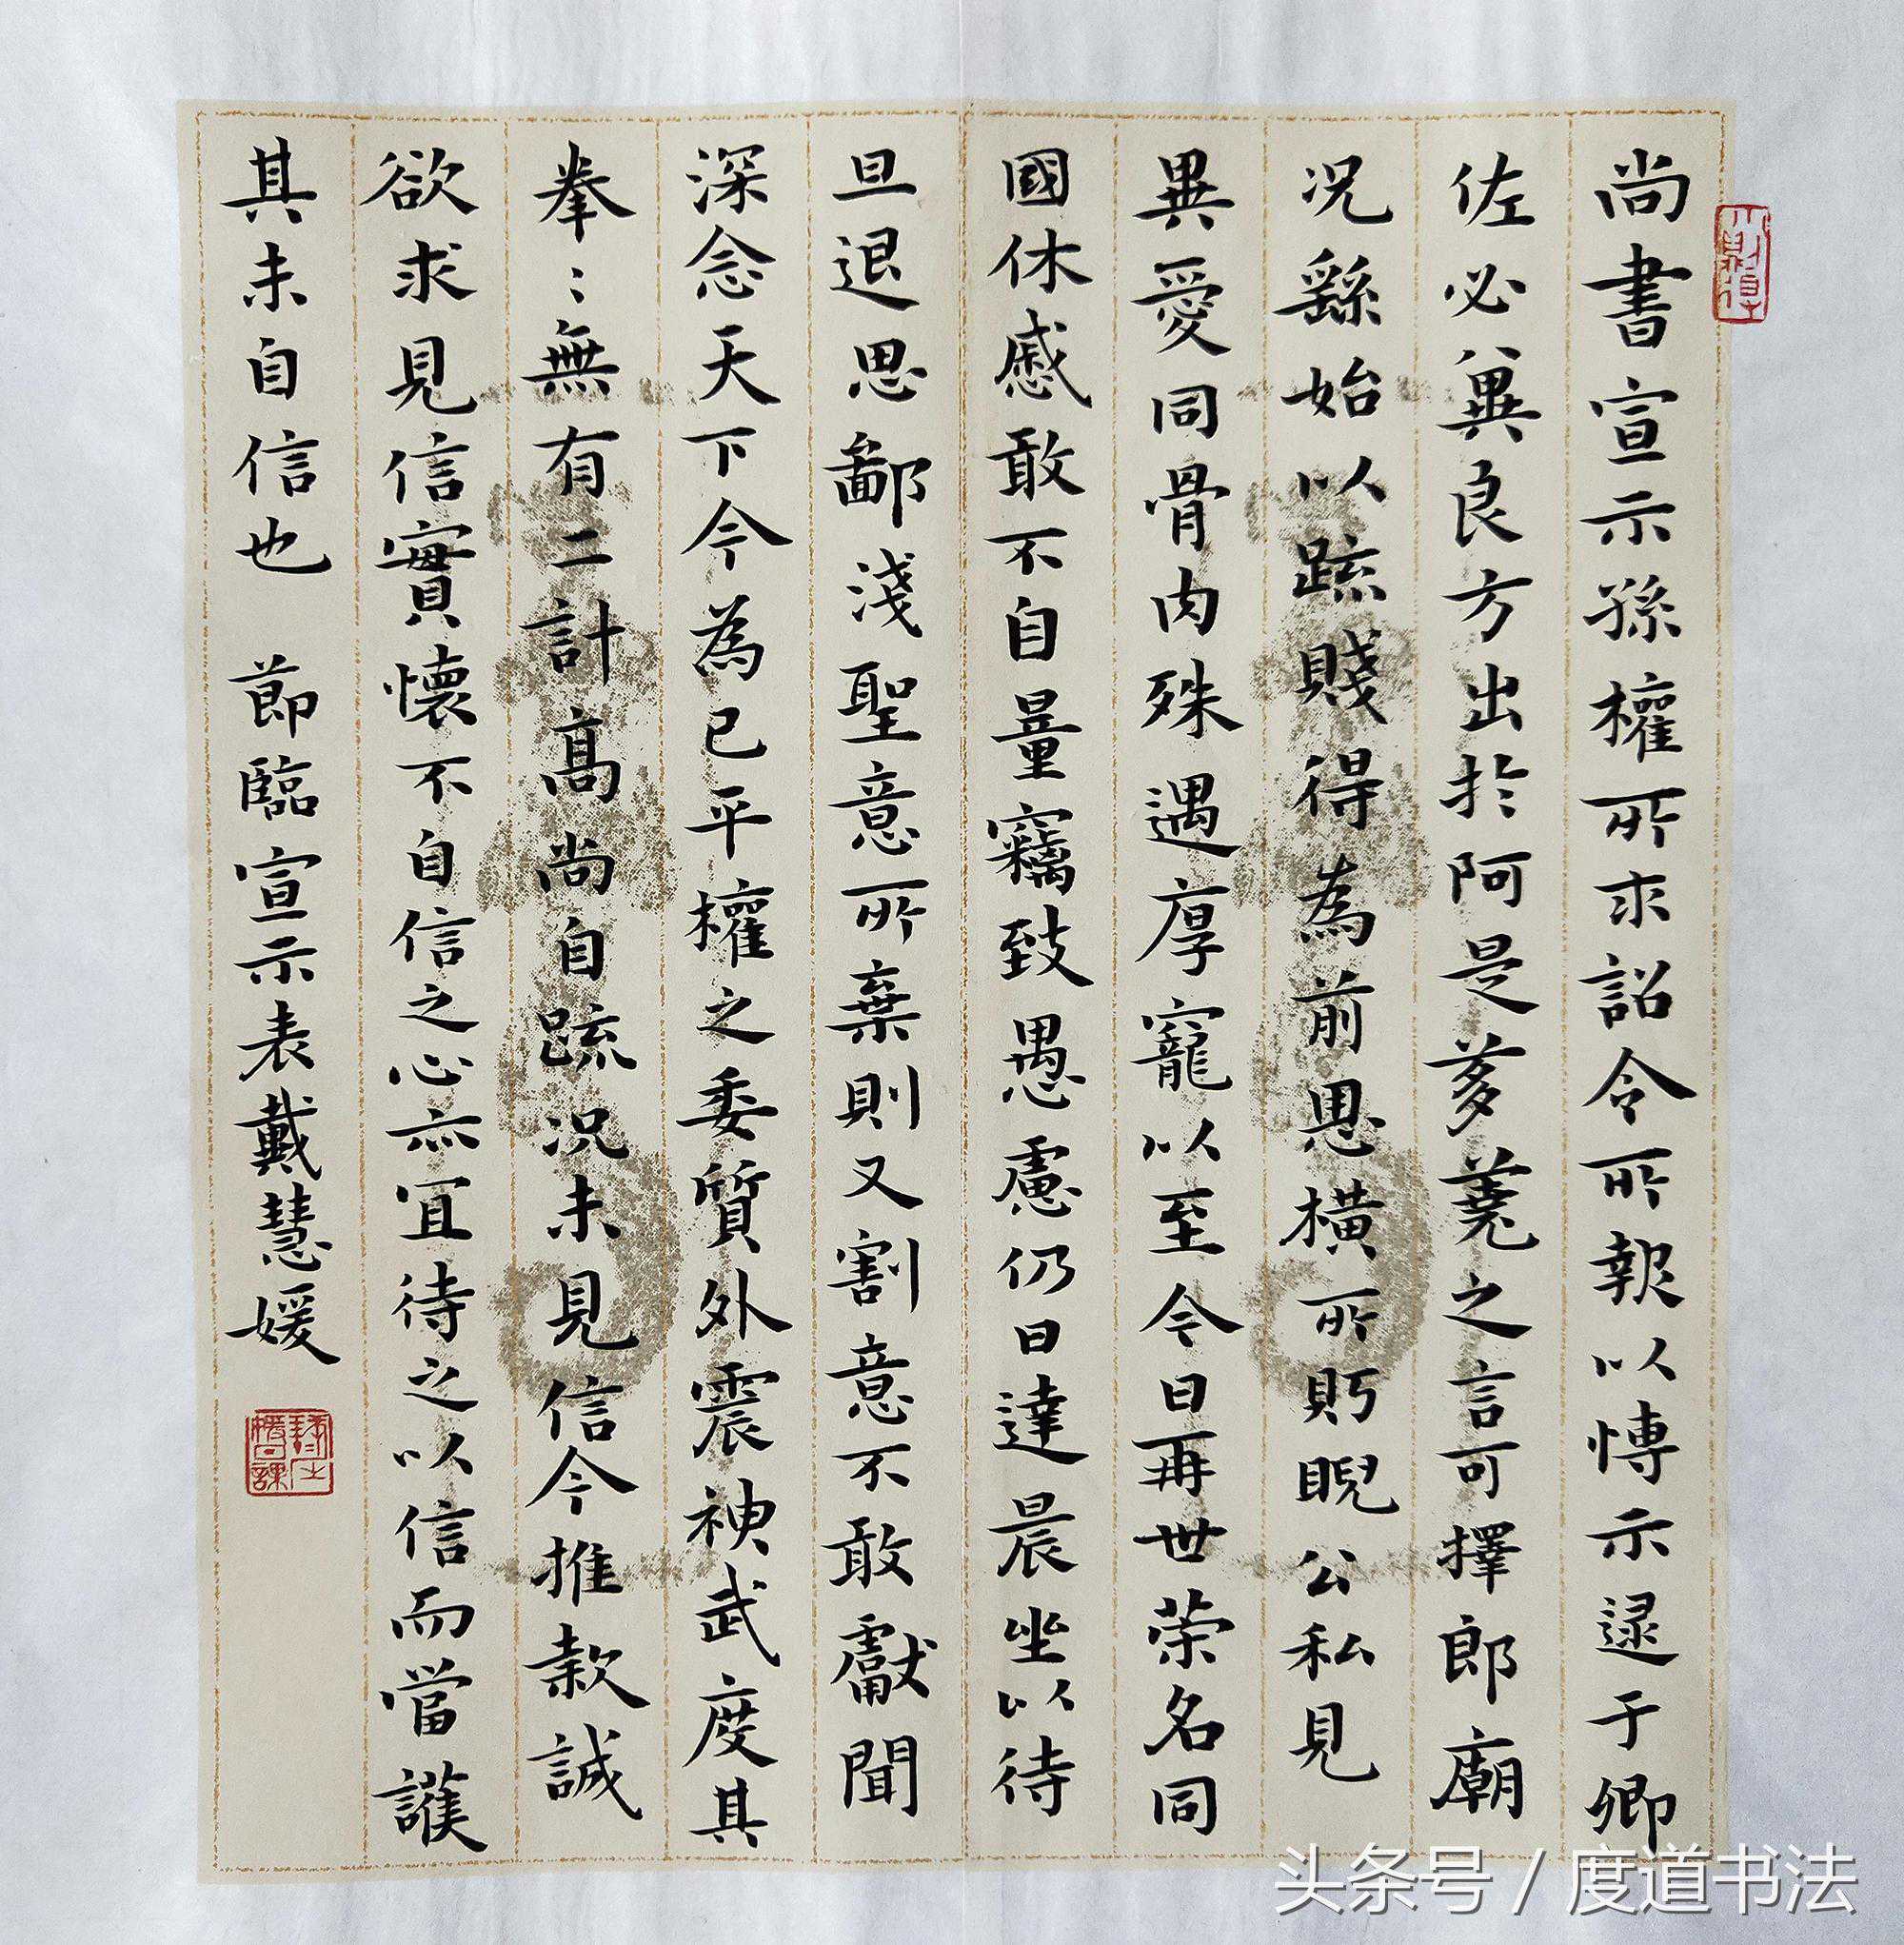 尚書宣示孫權所求詔令所報以博示逮于卿
佐必異良方出於阿是芻蕘之言可擇郎廟
況繇始以疏賤得為前恩橫所盻睨公私見
異愛同骨肉殊遇厚寵以至今日再世荣名同
國休慼敢不自量竊致愚慮仍日達晨坐以待
旦退思鄙淺聖意所棄則又割意不敢獻聞
深念天下今為已平權之委質外震神武度其
拳〻無有二計高尚自疏況未見信今推款誠
欲求見信實懷不自信之心亦宜待之以信而當護
其未自信也 節臨宣示表戴慧媛
头条号 / 度道书法